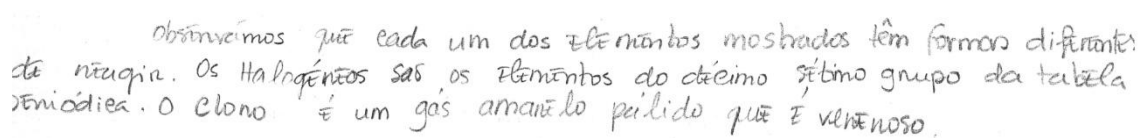 Observámos que cada um dos elementos mostrados têm formas diferentes
de reagir. Os Halogéneos são os elementos do décimo sétimo grupo da tabela
periódica. O cloro é um gás amarelo pálido que é venenoso.